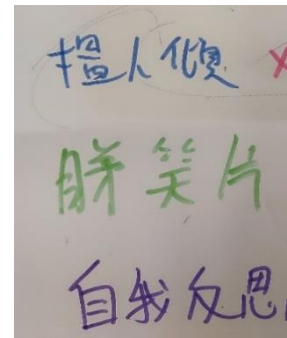 搵人傾
睇笑片
自我反思